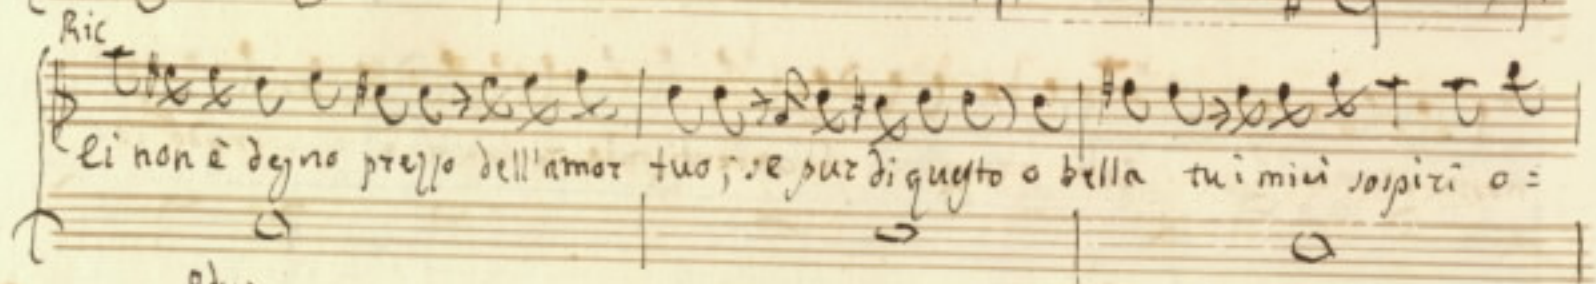 Ric
lei non è degno prezzo dell'amor tuo; se pur di questo o bella tu i miei sospiri o=